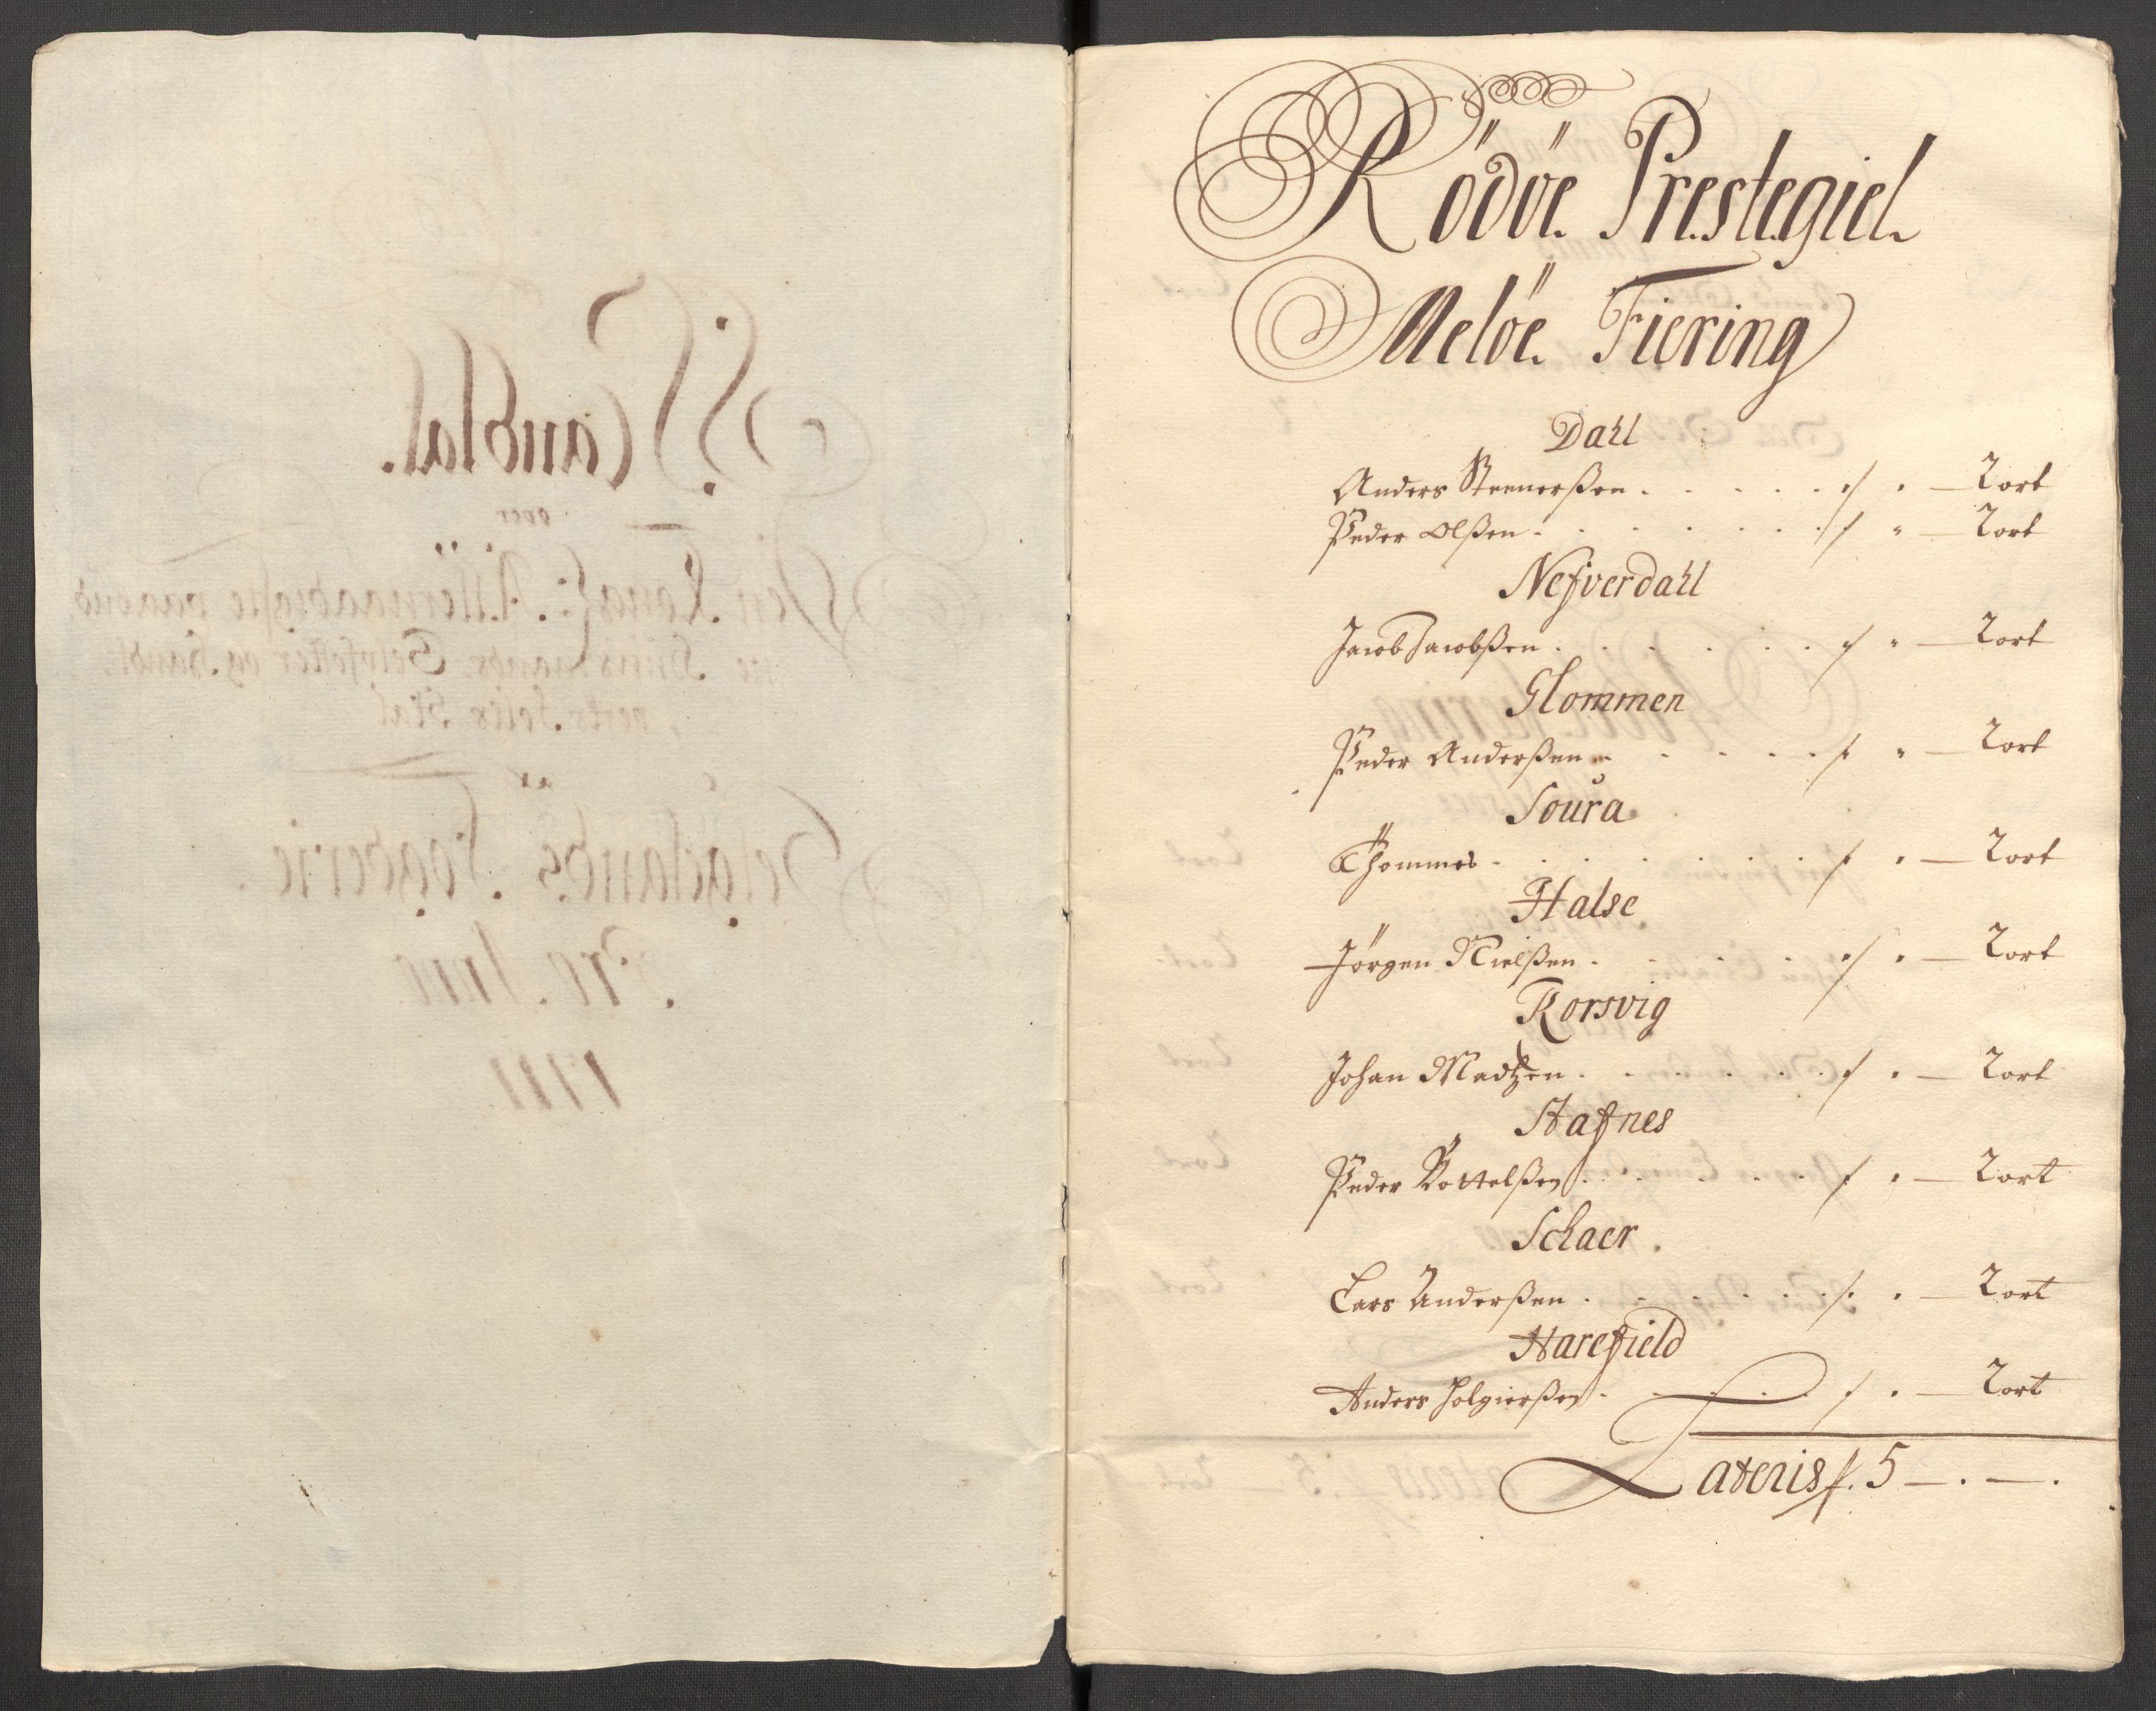 Rödöe Prestegiel
Melöe Fiering
Dahl
Anders Steenerßen . . . . . ./ . — 2 ort
Peder Olßen . . . . . . / " — 2 ort
Nefverdahl
Jacob Jacobßen . . . . . . / " — 2 ort
Glommen
Peder Anderßen . . . . . / " — 2 ort
Soŭra
Thommes . . . . . . . / . — 2 ort
Halse
Jörgen Nielßen . . . . . / . — 2 ort
Korsvig
Johan Madtzen . . . . . . / . — 2 ort
Stafnes
Peder Bottelßen . . . . . . / . — 2 ort
Schaer .
Lars Anderßen . . . . . . / . — 2 ort
Harefield
Anders Holgierßen . . . . . / . — 2 ort
Lateris f. 5 — . — .